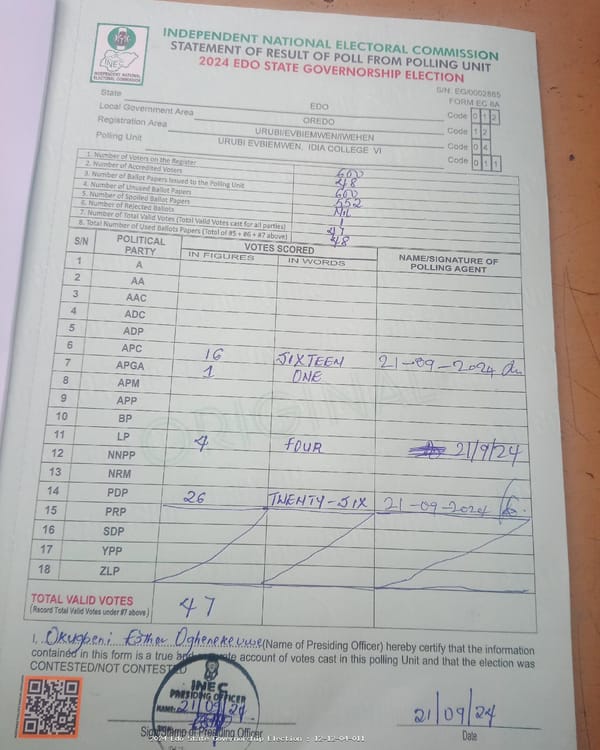 INDEPENDENT NATIONAL ELECTORAL COMMISSION
STATEMENT OF RESULT OF POLL FROM POLLING UNIT
2024 EDO STATE GOVERNORSHIP ELECTION
INEC
INDEPENDENT NATIONAL ELECTORAL COMMISSION
S/N: EG/0002865
FORM EC 8A
State EDO Code 0 1 2
Local Government Area OREDO Code 1 2
Registration Area URUBI/EVBIEMWEN/IWEHEN Code 0 4
Polling Unit URUBI EVBIEMWEN, IDIA COLLEGE VI Code 0 1 1
1. Number of Voters on the Register 600
2. Number of Accredited Voters 48
3. Number of Ballot Papers Issued to the Polling Unit 600
4. Number of Unused Ballot Papers 552
5. Number of Spoiled Ballot Papers NIL
6. Number of Rejected Ballots 1
7. Number of Total Valid Votes (Total Valid Votes cast for all parties) 47
8. Total Number of Used Ballots Papers (Total of #5 + #6 + #7 above) 48
S/N POLITICAL PARTY VOTES SCORED NAME/SIGNATURE OF POLLING AGENT
IN FIGURES IN WORDS
1 A
2 AA
3 AAC
4 ADC
5 ADP
6 APC 16 SIXTEEN 21-09-2024
7 APGA 1 ONE
8 APM
9 APP
10 BP
11 LP 4 FOUR 21/9/24
12 NNPP
13 NRM
14 PDP 26 TWENTY-SIX 21-09-2024
15 PRP
16 SDP
17 YPP
18 ZLP
ORIGINAL
TOTAL VALID VOTES 47
(Record Total Valid Votes under #7 above)
I, Okugbeni Esther Oghenekevwe (Name of Presiding Officer) hereby certify that the information
contained in this form is a true and account of votes cast in this polling Unit and that the election was
CONTESTED/NOT CONTESTED
INEC
PRESIDING OFFICER
NAME:
21/09/24
SIGN:
21/09/24
Sign/Stamp of Presiding Officer Date
2024 Edo State Governorship Election : 12-12-04-011